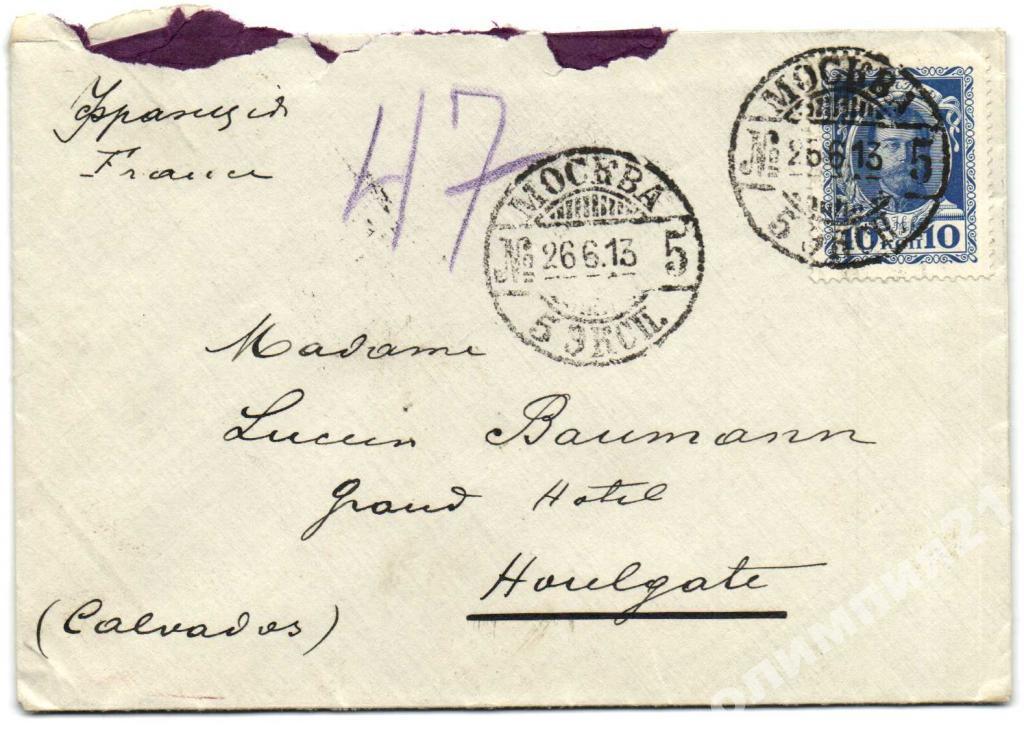 Франція
France
47
МОСКВА
№ 26 6.13 5
5 ЭКСП.
МОСКВА
№ 26 6 13 5
5 ЭКСП.
10 КОП 10
Madame
Lucien Baumann
Grand Hotel
Houlgate
(Calvados)
олимпия21